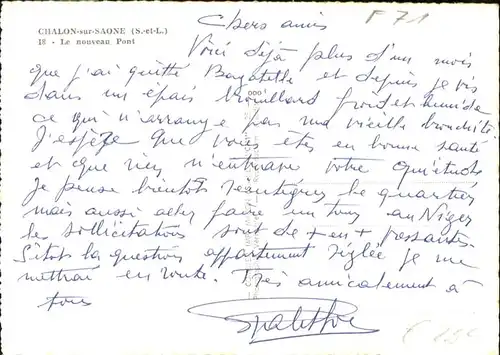 CHALON-sur-SAONE (S.-et-L.)
18 - Le nouveau Pont
F 71
Chers amis
Voici déjà plus d'un mois
que j'ai quitté Bagatelle et depuis je vis
dans un épais brouillard froid et humide
ce qui n'arrange pas ma vieille bronchite
J'espère que vous êtes en bonne santé
et que rien n'entrave votre quiétude
Je pense bientôt réintégrer le quartier
mais aussi aller faire un tour au Niger
les sollicitations sont de + en + pressantes.
Sitôt la question appartement réglée je me
mettrai en route. Très amicalement à
tous